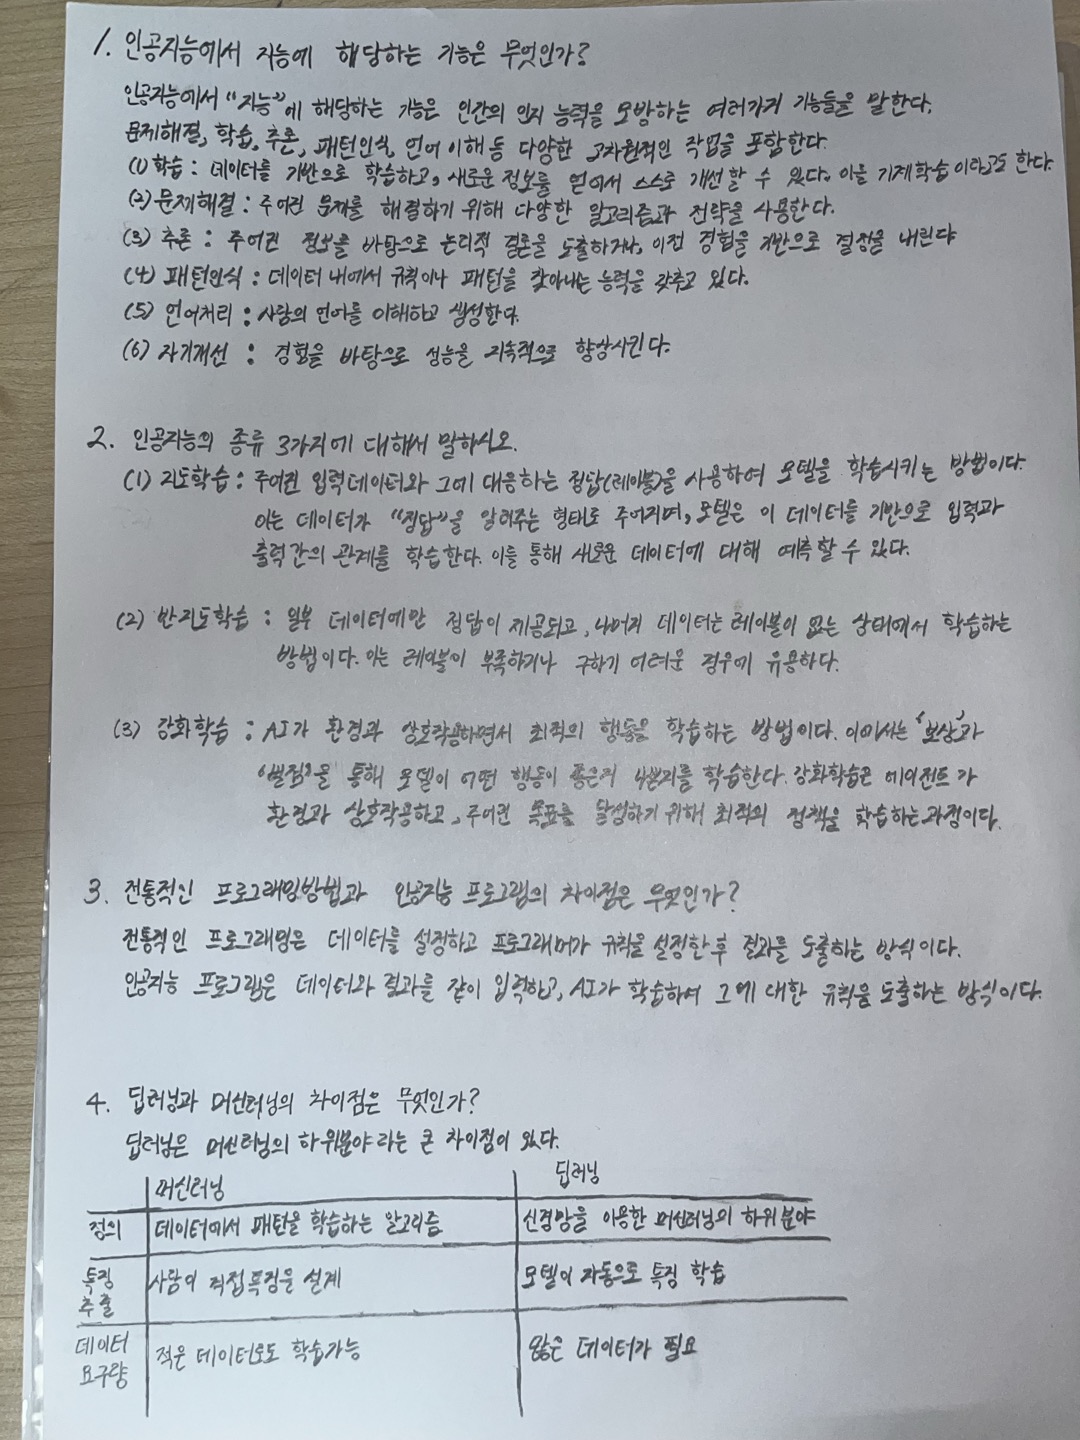 1. 인공지능에서 지능에 해당하는 기능은 무엇인가?
인공지능에서 "지능"에 해당하는 기능은 인간의 인지 능력을 모방하는 여러가지 기능들을 말한다.
문제해결, 학습, 추론, 패턴인식, 언어 이해 등 다양한 고차원적인 작업을 포함한다.
(1) 학습 : 데이터를 기반으로 학습하고, 새로운 정보를 얻어서 스스로 개선할 수 있다. 이를 기계학습 이라고도 한다.
(2) 문제해결 : 주어진 문제를 해결하기 위해 다양한 알고리즘과 전략을 사용한다.
(3) 추론 : 주어진 정보를 바탕으로 논리적 결론을 도출하거나, 이전 경험을 기반으로 결정을 내린다
(4) 패턴인식 : 데이터 내에서 규칙이나 패턴을 찾아내는 능력을 갖추고 있다.
(5) 언어처리 : 사람의 언어를 이해하고 생성한다.
(6) 자기개선 : 경험을 바탕으로 성능을 지속적으로 향상시킨다.
2. 인공지능의 종류 3가지에 대해서 말하시오.
(1) 지도학습 : 주어진 입력데이터와 그에 대응하는 정답(레이블)을 사용하여 모델을 학습시키는 방법이다.
이는 데이터가 "정답"을 알려주는 형태로 주어지며, 모델은 이 데이터를 기반으로 입력과
출력간의 관계를 학습한다. 이를 통해 새로운 데이터에 대해 예측할 수 있다.
(2) 반지도학습 : 일부 데이터에만 정답이 제공되고, 나머지 데이터는 레이블이 없는 상태에서 학습하는
방법이다. 이는 레이블이 부족하거나 구하기 어려운 경우에 유용하다.
(3) 강화학습 : AI가 환경과 상호작용하면서 최적의 행동을 학습하는 방법이다. 이에서는 '보상'과
'벌점'을 통해 모델이 어떤 행동이 좋은지 나쁜지를 학습한다. 강화학습은 에이전트가
환경과 상호작용하고, 주어진 목표를 달성하기 위해 최적의 정책을 학습하는 과정이다.
3. 전통적인 프로그래밍방법과 인공지능 프로그램의 차이점은 무엇인가?
전통적인 프로그래밍은 데이터를 설정하고 프로그래머가 규칙을 설정한 후 결과를 도출하는 방식이다.
인공지능 프로그램은 데이터와 결과를 같이 입력하고, AI가 학습하여 그에 대한 규칙을 도출하는 방식이다.
4. 딥러닝과 머신러닝의 차이점은 무엇인가?
딥러닝은 머신러닝의 하위분야라는 큰 차이점이 있다.
머신러닝 딥러닝
정의 데이터에서 패턴을 학습하는 알고리즘 신경망을 이용한 머신러닝의 하위분야
특징 사람이 직접특징을 설계 모델이 자동으로 특징 학습
추출
데이터 적은 데이터로도 학습가능 많은 데이터가 필요
요구량